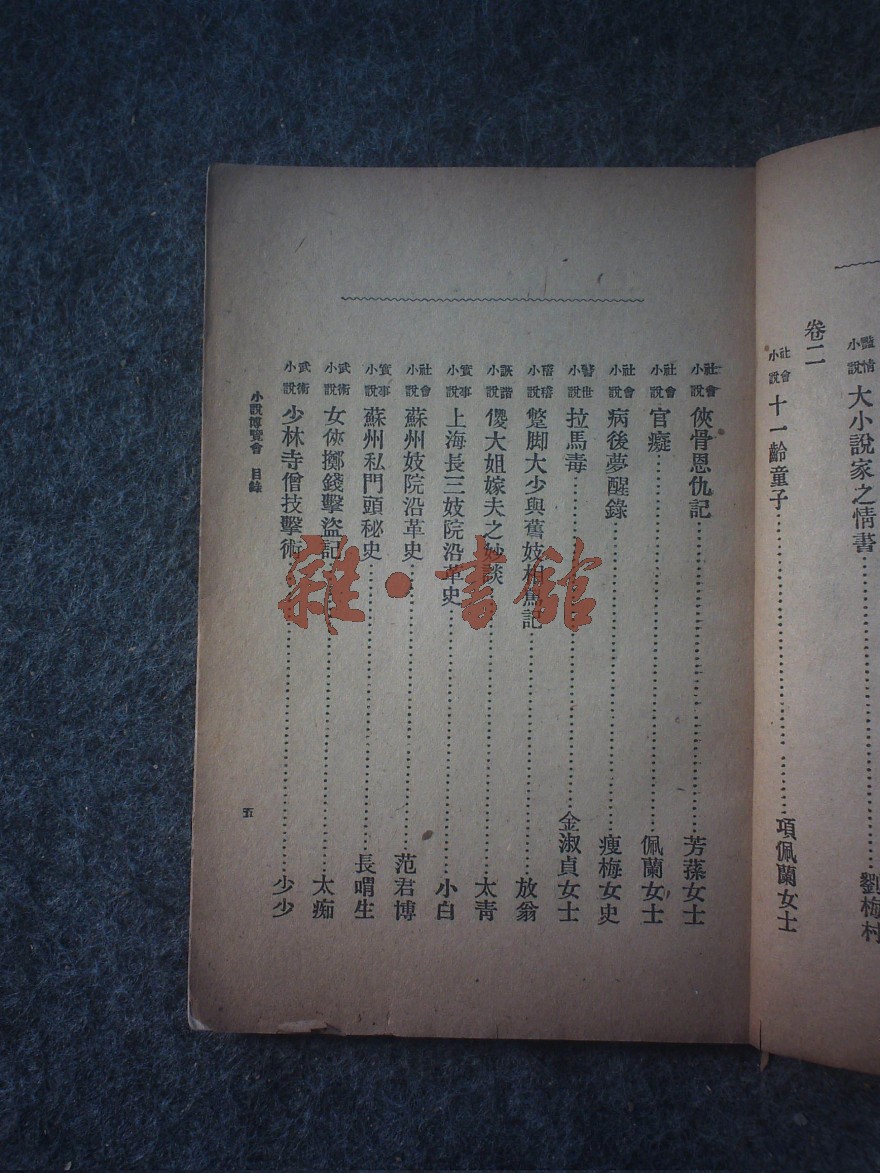 艷情小說 大小說家之情書 劉梅村
卷二
社會小說 十一齡童子 項佩蘭女士
社會小說 俠骨恩仇記 芳蓀女士
社會小說 官癡 佩蘭女士
社會小說 病後夢醒錄 瘦梅女史
警世小說 拉馬毒 金淑貞女士
滑稽小說 蹩脚大少與舊妓相罵記 放翁
詼諧小說 儍大姐嫁夫之妙談 太青
實事小說 上海長三妓院沿革史 小白
社會小說 蘇州妓院沿革史 范君博
實事小說 蘇州私門頭秘史 長喟生
武術小說 女俠擲錢擊盜記 太痴
武術小說 少林寺僧技擊術 少少
小說博覽會 目錄
五
雜·書館